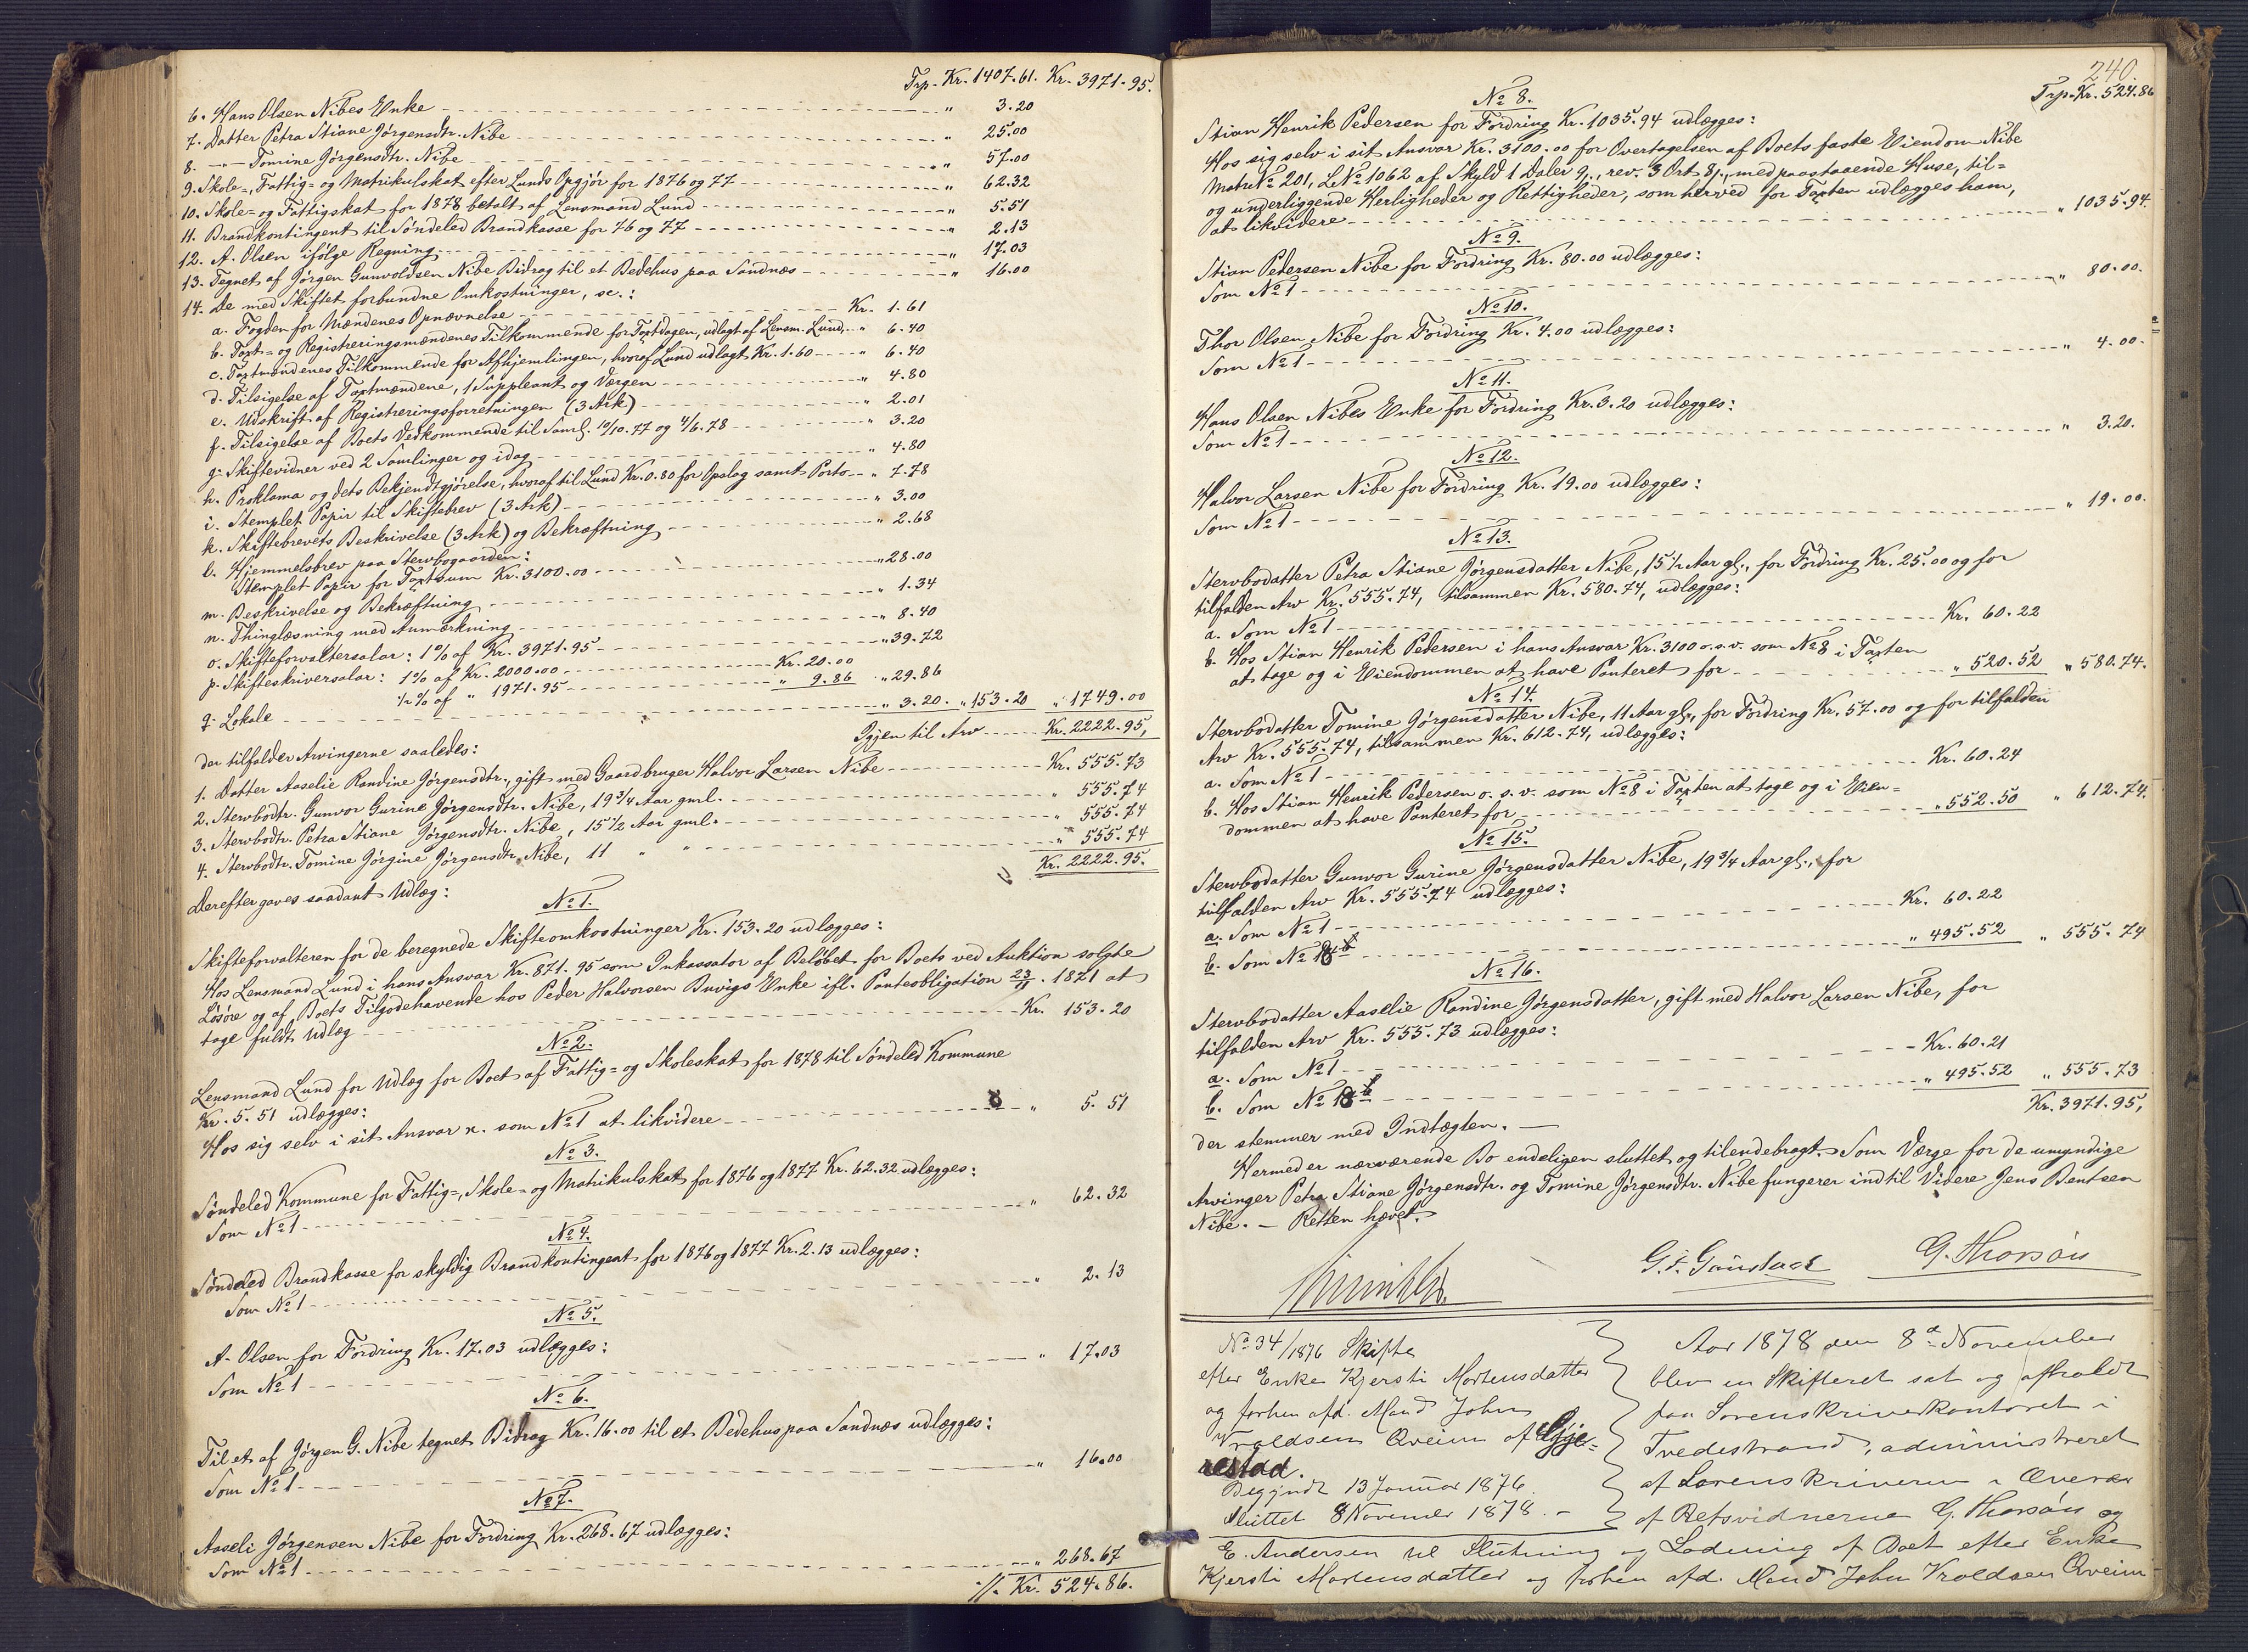 Trp. Kr. 1407.61. Kr. 3971.95.
6. Hans Olsen Nibes Enke " 3.20
7. Datter Petra Stiane Jørgensdtr. Nibe " 25.00
8. —"— Tomine Jørgensdtr. Nibe " 57.00
9. Skole-, Fattig- og Matrikulskat efter Lunds Opgjør for 1876 og 77 " 62.32
10. Skole- og Fattigskat for 1878 betalt af Lensmand Lund " 5.51
11. Brandkontingent til Søndeled Brandkasse for 76 og 77 " 2.13
12. A. Olsen ifølge Regning " 17.03
13. Tegnet af Jørgen Gunvoldsen Nibe Bidrag til et Bedehus paa Sandnæs " 16.00
14. De med Skiftet forbundne Omkostninger, sc.:
a. Fogden for Mændenes Opnævnelse Kr. 1.61
b. Taxt- og Registreringsmændenes Tilkommende for Taxtdagen, udlagt af Lensm. Lund " 6.40
c. Taxtmændenes Tilkommende for Afhjemlingen, hvoraf Lund udlagt Kr. 1.60 " 6.40
d. Tilsigelse af Taxtmændene, 1 Suppleant og Værgen " 4.80
e. Udskrift af Registreringsforretningen (3 Ark) " 2.01
f. Tilsigelse af Boets Vedkommende til Saml. 10/10.77 og 4/6.78 " 3.20
g. Skiftevidner ved 2 Samlinger og idag " 4.80
h. Proklama og dets Bekjendtgjørelse, hvoraf til Lund Kr. 0.80 for Opslag samt Porto " 7.78
i. Stemplet Papir til Skiftebrev (3 Ark) " 3.00
k. Skiftebrevets Beskrivelse (3 Ark) og Bekræftning " 2.68
l. Hjemmelsbrev paa Stervbogaarden:
Stemplet Papir for Taxtsum Kr. 3100.00 " 28.00
m. Beskrivelse og Bekræftning " 1.34
n. Thinglæsning med Anmærkning " 8.40
o. Skifteforvaltersalar: 1% af Kr. 3971.95 " 39.72
p. Skifteskriversalar: 1% af Kr. 2000.00 Kr. 20.00
½% af " 1971.95 " 9.86 " 29.86
q. Lokale " 3.20. " 153.20 " 1749.00
Igjen til Arv Kr. 2222.95,
der tilfalder Arvingerne saaledes:
1. Datter Aaselie Randine Jørgensdtr., gift med Gaardbruger Halvor Larsen Nibe Kr. 555.73
2. Stervbodtr. Gunvor Gurine Jørgensdtr. Nibe, 19¾ Aar gml. " 555.74
3. Stervbodtr. Petra Stiane Jørgensdtr. Nibe, 15½ Aar gml. " 555.74
4. Stervbodtr. Tomine Jørgine Jørgensdtr. Nibe, 11 " " " 555.74
Kr. 2222.95.
Derefter gaves saadant Udlæg:
No 1.
Skifteforvalteren for de beregnede Skifteomkostninger Kr. 153.20 udlægges:
Hos Lensmand Lund i hans Ansvar Kr. 871.95 som Inkassator af Beløbet for Boets ved Auktion solgte
Løsøre og af Boets Tilgodehavende hos Peder Halvorsen Buvigs Enke ifl. Panteobligation 23/11. 1871 at
tage fuldt Udlæg Kr. 153.20
No 2.
Lensmand Lund for Udlæg for Boet af Fattig- og Skoleskat for 1878 til Søndeled Kommune
Kr. 5.51 udlægges:
Hos sig selv i sit Ansvar x. som No 1 at likvidere " 5.51
No 3.
Søndeled Kommune for Fattig-, Skole- og Matrikulskat for 1876 og 1877 Kr. 62.32 udlægges:
Som No 1 " 62.32
No 4.
Søndeled Brandkasse for skyldig Brandkontingent for 1876 og 1877 Kr. 2.13 udlægges:
Som No 1 " 2.13
No 5.
A. Olsen for Fordring Kr. 17.03 udlægges:
Som No 1 " 17.03
No 6.
Til et af Jørgen G. Nibe tegnet Bidrag Kr. 16.00 til et Bedehus paa Sandnæs udlægges:
Som No 1 " 16.00
No 7.
Aaseli Jørgensen Nibe for Fordring Kr. 268.67 udlægges:
Som No 1 " 268.67
./. Kr. 524.86.
240.
Trp. Kr. 524.86
No 8.
Stian Henrik Pedersen for Fordring Kr. 1035.94 udlægges:
Hos sig selv i sit Ansvar Kr. 3100.00 for Overtagelsen af Boets faste Eiendom Nibe
Matr. No 201, L. No 1062 af Skyld 1 Daler 9 ., rev. 3 Ort 8 ., med paastaaende Huse, til-
og underliggende Herligheder og Rettigheder, som herved for Taxten udlægges ham,
at likvidere " 1035.94.
No 9.
Stian Pedersen Nibe for Fordring Kr. 80.00 udlægges:
Som No 1 " 80.00.
No 10.
Thor Olsen Nibe for Fordring Kr. 4.00 udlægges:
Som No 1 " 4.00.
No 11.
Hans Olsen Nibes Enke for Fordring Kr. 3.20 udlægges:
Som No 1 " 3.20.
No 12.
Halvor Larsen Nibe for Fordring Kr. 19.00 udlægges:
Som No 1 " 19.00.
No 13.
Stervbodatter Petra Stiane Jørgensdatter Nibe, 15½ Aar gl., for Fordring Kr. 25.00 og for
tilfalden Arv Kr. 555.74, tilsammen Kr. 580.74, udlægges:
a. Som No 1 Kr. 60.22
b. Hos Stian Henrik Pedersen i hans Ansvar Kr. 3100 o.s.v. som No 8 i Taxten
at tage og i Eiendommen at have Panteret for " 520.52 " 580.74.
No 14.
Stervbodatter Tomine Jørgensdatter Nibe, 11 Aar gl., for Fordring Kr. 57.00 og for tilfalden
Arv Kr. 555.74, tilsammen Kr. 612.74, udlægges:
a. Som No 1 Kr. 60.24
b. Hos Stian Henrik Pedersen o.s.v. som No 8 i Taxten at tage og i Eien-
dommen at have Panteret for " 552.50 " 612.74.
No 15.
Stervbodatter Gunvor Gurine Jørgensdatter Nibe, 19¾ Aar gl., for
tilfalden Arv Kr. 555.74 udlægges:
a. Som No 1 Kr. 60.22
b. Som No " 495.52 " 555.74
No 16.
Stervbodatter Aaselie Randine Jørgensdatter, gift med Halvor Larsen Nibe, for
tilfalden Arv Kr. 555.73 udlægges:
a. Som No 1 Kr. 60.21
b. Som No " 495.52 " 555.73
Kr. 3971.95,
der stemmer med Indtægten. —
Hermed er nærværende Bo endeligen sluttet og tilendebragt. Som Værge for de umyndige
Arvinger Petra Stiane Jørgensdtr. og Tomine Jørgensdtr. Nibe fungerer indtil Videre Jens Bentsen
Nibe. — Retten hævet.
G. Thorsøn
No 34/1876 Skifte
efter Enke Kjersti Mortensdatter
og forhen afd. Mand John
Vraldsen Qveim af Gje-
restad.
Begyndt 13 Januar 1876.
Sluttet 8 November 1878. —
Aar 1878 den 8d November
blev en Skifteret sat og afholdt
paa Sorenskriverkontoret i
Tvedestrand, administreret
af Sorenskriveren i Overvær
af Retsvidnerne G. Thorsøn og
E. Andersen til Slutning og Lodning af Boet efter Enke
Kjersti Mortensdatter og forhen afd. Mand John Vraldsen Qveim